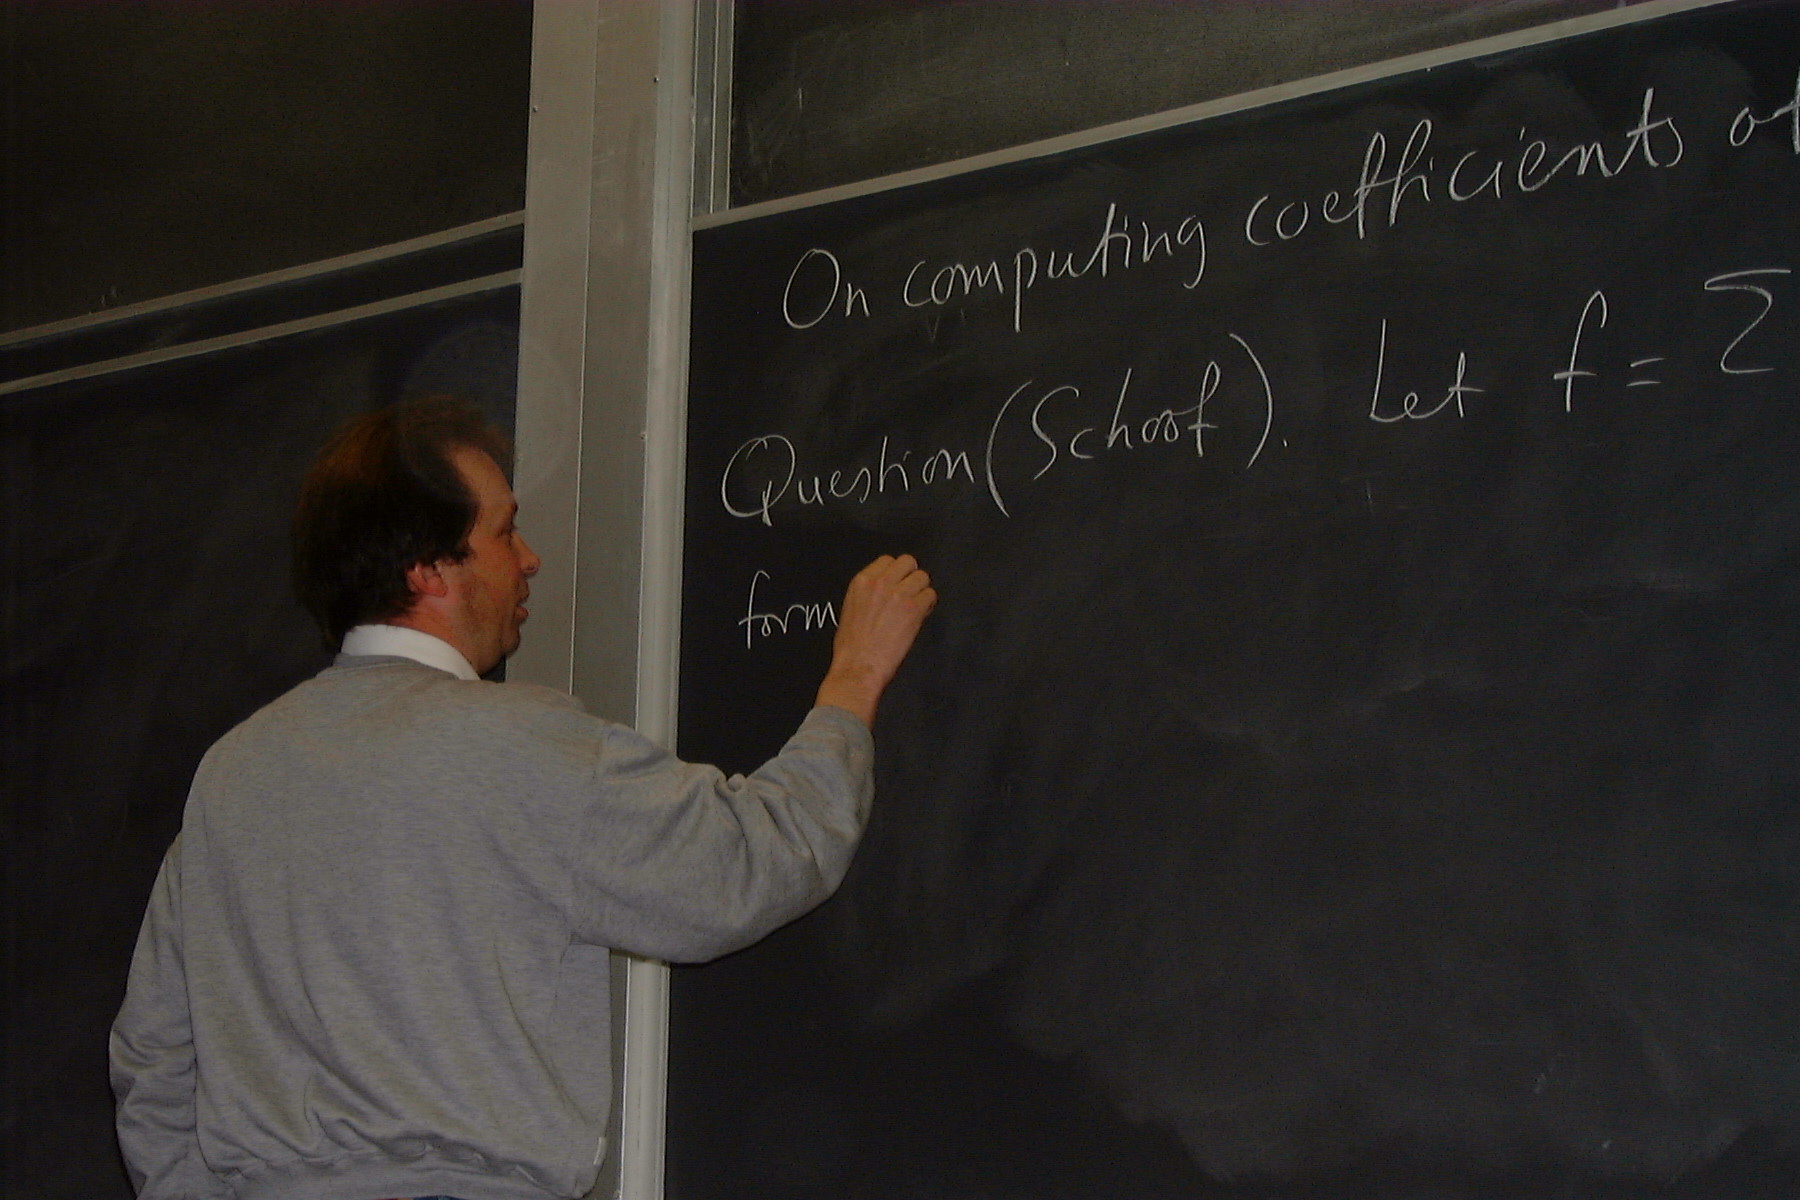 On computing coefficients of
Question (Schoof). Let f = Σ
form